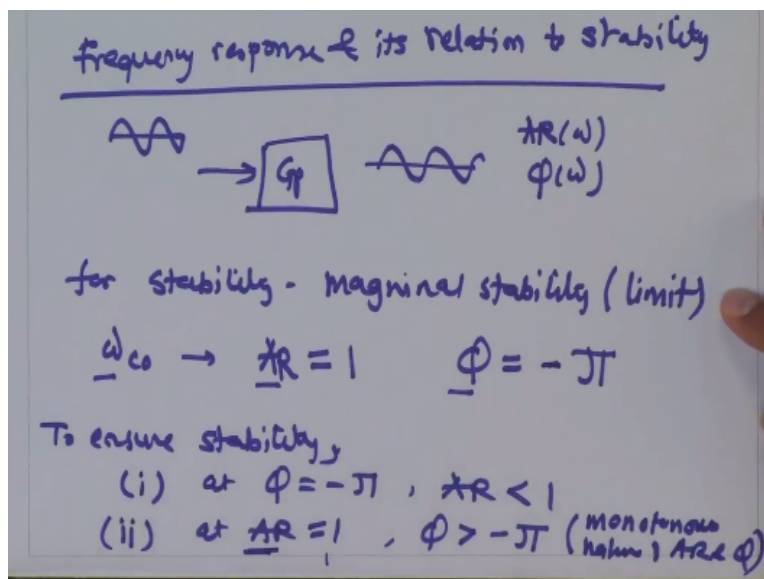 Frequency response & its relation to stability
AR(ω)
Gp
φ(ω)
for stability - magninal stability (limit)
ωco → AR = 1 φ = - π
To ensure stability,
(i) at φ = -π , AR < 1
(ii) at AR = 1 , φ > -π (monotonous
nature of AR & φ)